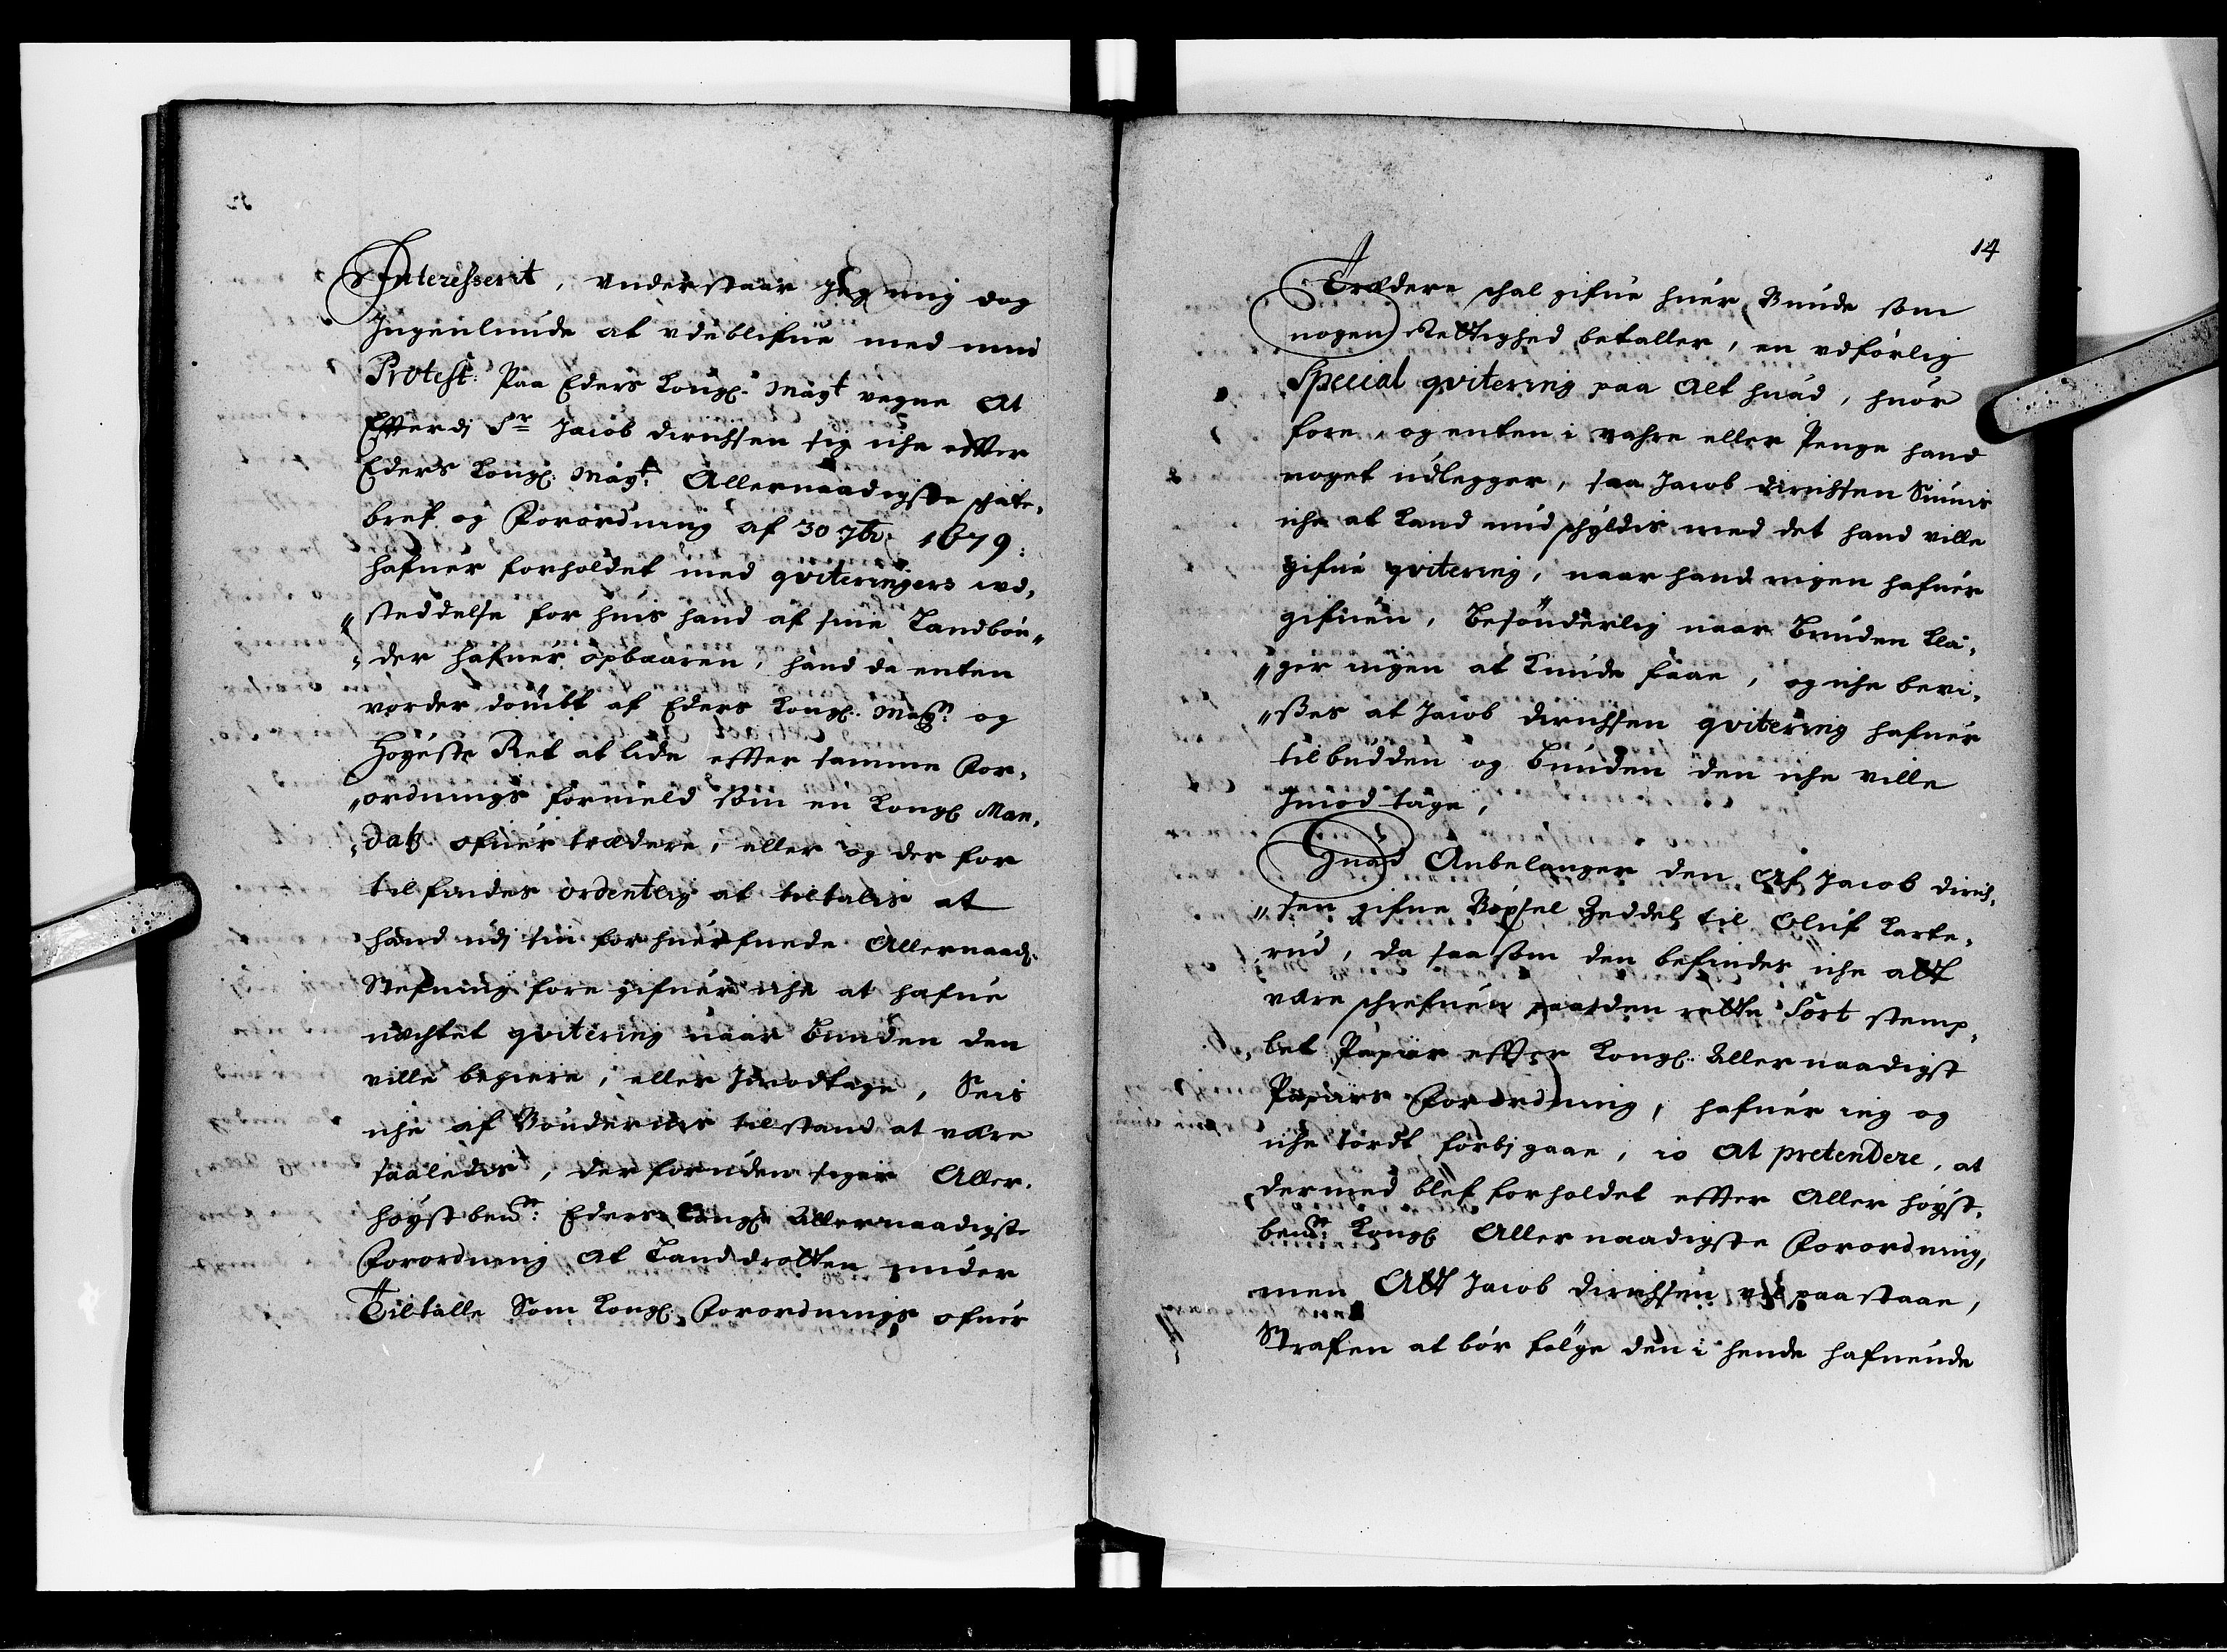 Interesserit, vnderstaar Jeg mig dog
Jngenlunde at vdeblifue med min
Protest: Paa Eders Kongl: Mayt vegne At
Efterdj Sr Jacob Dirichsen sig iche efter
Eders Kongl: Mayts Allernaadigste schate,
bref og Forordning af 30 7br: 1679:
hafuer forholdet med qviteringers wd,
„steddelse for huis hand af sine Landbøn„
„der hafuer opbaaren, hand da enten
vorder dømbt af Eders Kongl: Mayt og
Høyeste Ret at lide efter samme For,
„ordnings formeld som en Kongl Man,
„datz ofuer trædere, eller og der for
tilfindes ordentlig at tiltalis at
hand udj sin forhuerfuede Allernaad:
Stefning fore gifuer iche at hafue
nechtet qvitering naar Bonden den
ville begiere, eller Jmodtage, Seis
iche af Bønderne tilstand at være
saaledis, der foruden siger Aller,
høystbemte: Eders Kongl Allernaadigste
Forordning At Landdrotten under
Tiltalle Som Kongl: Forordnings ofuer
14
Trædere schal gifue huer Bunde som
nogen Rettighed betaller, en vdførlig
Special qvitering paa Alt huad, huor
fore, og enten i vahre eller Penge hand
noget udlegger, saa Jacob Dirichsen Siunis
iche at kand undschyldis med det hand ville
gifue qvitering, naar hand ingen hafuer
gifuen, Besønderlig naar Bunden kla,
„ger ingen at kunde faae, og iche bevi,
„ses at Jacob Dirichsen qvitering hafuer
tilbudden og Bunden den iche ville
Jmod tage,
Huad Anbelanger den Af Jacob Dirich,
„sen gifne Bøxsel Zeddel til Oluf Karte,
rud, da saa som den befindes iche att
være schrefuen paa den rette Sort stemp,
„let Papiir efter Kongl: Allernaadigst
Papiirs Forordning, hafuer ieg og
iche tordt forbj gaae, io At pretendere, at
dermed blef forholdet efter Aller høyst,
bemte Kongl Allernaadigste Forordning,
men Att Jacob Dirichsen vil paastaae,
Strafen at bør følge den i hende hafuende